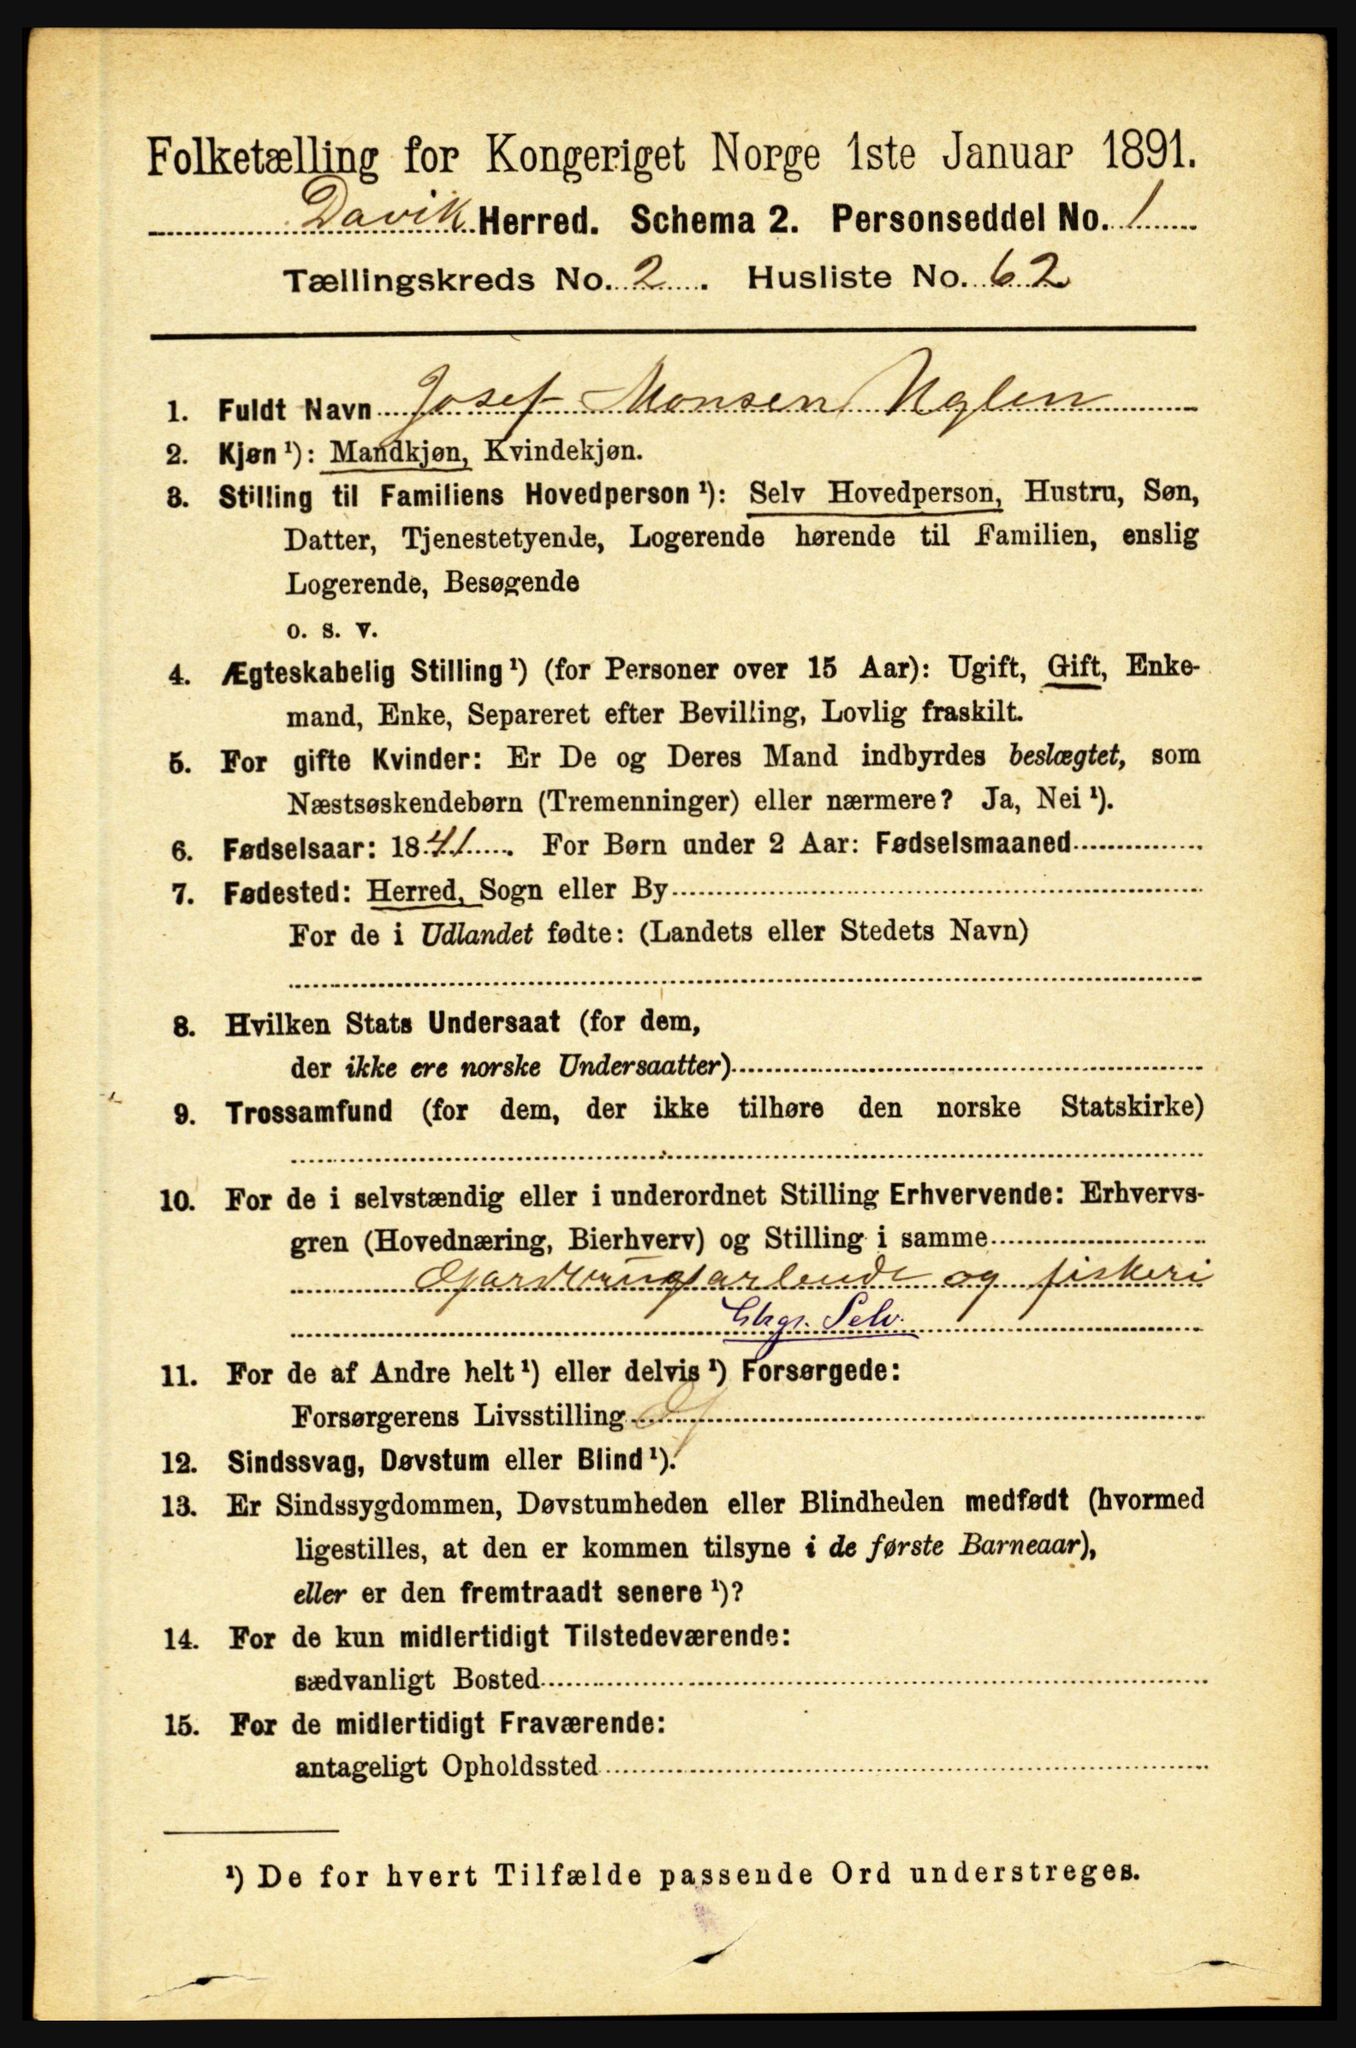 Folketælling for Kongeriget Norge 1ste Januar 1891.
Davik Herred. Schema 2. Personseddel No. 1
Tællingskreds No. 2. Husliste No. 62
1. Fuldt Navn Josef Monsen Uglen
2. Kjøn ¹): Mandkjøn, Kvindekjøn.
3. Stilling til Familiens Hovedperson ¹): Selv Hovedperson, Hustru, Søn,
Datter, Tjenestetyende, Logerende hørende til Familien, enslig
Logerende, Besøgende
o. s. v.
4. Ægteskabelig Stilling ¹) (for Personer over 15 Aar): Ugift, Gift, Enke-
mand, Enke, Separeret efter Bevilling, Lovlig fraskilt.
5. For gifte Kvinder: Er De og Deres Mand indbyrdes beslægtet, som
Næstsøskendebørn (Tremenninger) eller nærmere? Ja, Nei ¹).
6. Fødselsaar: 1841. For Børn under 2 Aar: Fødselsmaaned
7. Fødested: Herred, Sogn eller By
For de i Udlandet fødte: (Landets eller Stedets Navn)
8. Hvilken Stats Undersaat (for dem,
der ikke ere norske Undersaatter)
9. Trossamfund (for dem, der ikke tilhøre den norske Statskirke)
10. For de i selvstændig eller i underordnet Stilling Erhvervende: Erhvervs-
gren (Hovednæring, Bierhverv) og Stilling i samme
og fiskeri
Selv.
11. For de af Andre helt ¹) eller delvis ¹) Forsørgede:
Forsørgerens Livsstilling
12. Sindssvag, Døvstum eller Blind ¹).
13. Er Sindssygdommen, Døvstumheden eller Blindheden medfødt (hvormed
ligestilles, at den er kommen tilsyne i de første Barneaar),
eller er den fremtraadt senere ¹)?
14. For de kun midlertidigt Tilstedeværende:
sædvanligt Bosted
15. For de midlertidigt Fraværende:
antageligt Opholdssted
¹) De for hvert Tilfælde passende Ord understreges.